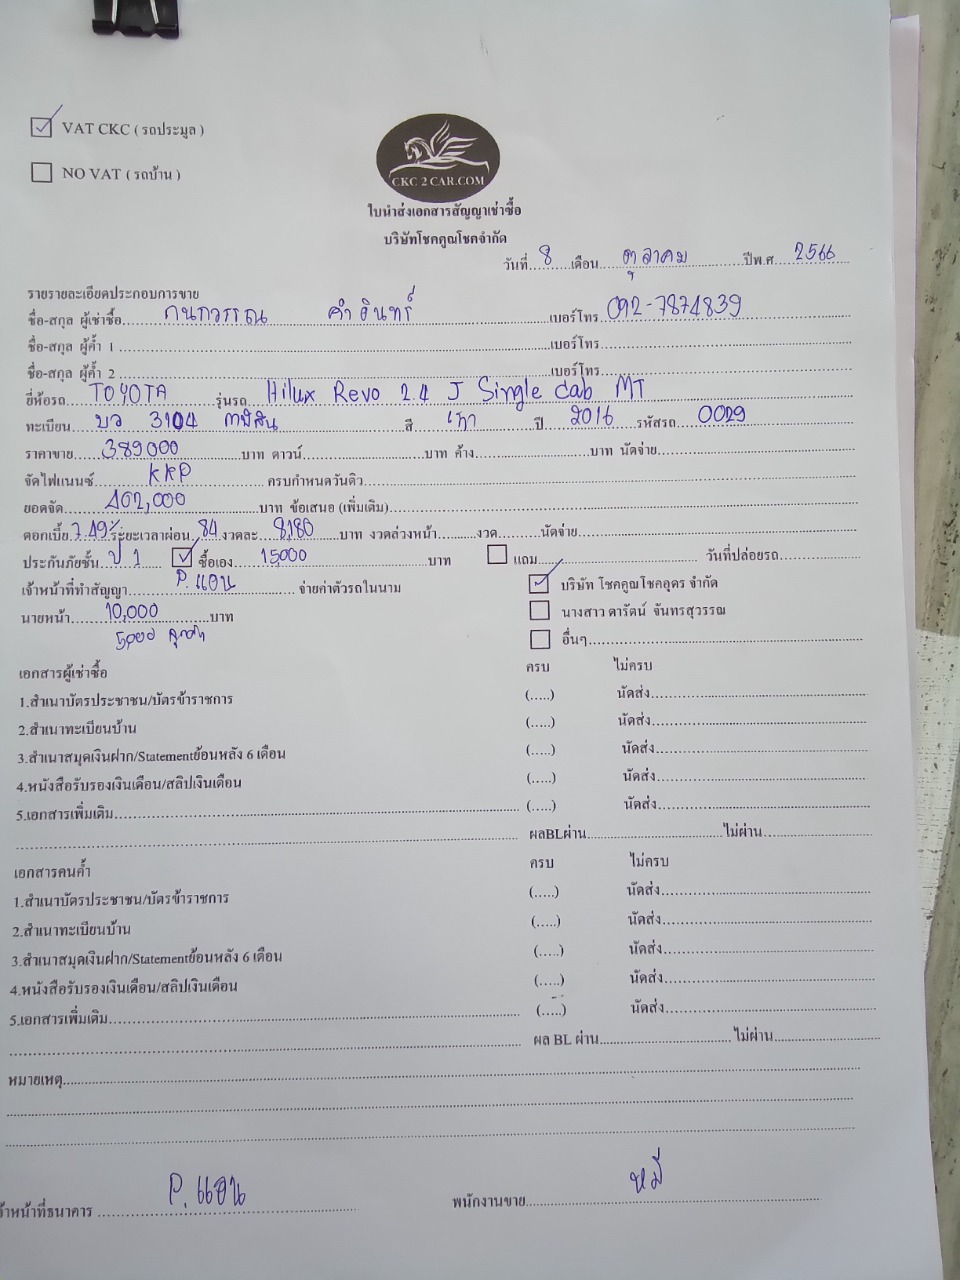 VAT CKC ( รถประมูล )
NO VAT ( รถบ้าน )
CKC 2 CAR.COM
ใบนำส่งเอกสารสัญญาเช่าซื้อ
บริษัทโชคคูณโชคจำกัด
วันที่ 8 เดือน ตุลาคม ปีพ.ศ 2566
รายรายละเอียดประกอบการขาย
ชื่อ-สกุล ผู้เช่าซื้อ กนกวรรณ คำอินทร์ เบอร์โทร 092-7874839
ชื่อ-สกุล ผู้ค้ำ 1 เบอร์โทร
ชื่อ-สกุล ผู้ค้ำ 2 เบอร์โทร
ยี่ห้อรถ TOYOTA รุ่นรถ Hilux Revo 2.4 J Single cab MT
ทะเบียน บว 3104 กาฬสินธุ์ สี เทา ปี 2016 รหัสรถ 0029
ราคาขาย 389000 บาท ดาวน์ บาท ค้าง บาท นัดจ่าย
จัดไฟแนนซ์ KKP ครบกำหนดวันดิว
ยอดจัด 402,000 บาท ข้อเสนอ (เพิ่มเติม)
ดอกเบี้ย 7.49% ระยะเวลาผ่อน 84 งวดละ 8,180 บาท งวดล่วงหน้า งวด นัดจ่าย
ประกันภัยชั้น ป 1 ซื้อเอง 15,000 บาท แถม วันที่ปล่อยรถ
เจ้าหน้าที่ทำสัญญา P. แอน จ่ายค่าตัวรถในนาม บริษัท โชคคูณโชคอุดร จำกัด
นายหน้า 10,000 บาท นางสาว ดารัตน์ จันทรสุวรรณ
5,000 ลูกค้า อื่นๆ
เอกสารผู้เช่าซื้อ ครบ ไม่ครบ
1.สำเนาบัตรประชาชน/บัตรข้าราชการ (.....) นัดส่ง
2.สำเนาทะเบียนบ้าน (.....) นัดส่ง
3.สำเนาสมุดเงินฝาก/Statementย้อนหลัง 6 เดือน (.....) นัดส่ง
4.หนังสือรับรองเงินเดือน/สลิปเงินเดือน (.....) นัดส่ง
5.เอกสารเพิ่มเติม (.....) นัดส่ง
ผลBLผ่าน ไม่ผ่าน
เอกสารคนค้ำ ครบ ไม่ครบ
1.สำเนาบัตรประชาชน/บัตรข้าราชการ (.....) นัดส่ง
2.สำเนาทะเบียนบ้าน (.....) นัดส่ง
3.สำเนาสมุดเงินฝาก/Statementย้อนหลัง 6 เดือน (.....) นัดส่ง
4.หนังสือรับรองเงินเดือน/สลิปเงินเดือน (.....) นัดส่ง
5.เอกสารเพิ่มเติม (.....) นัดส่ง
ผล BL ผ่าน ไม่ผ่าน
หมายเหตุ
จ้าหน้าที่ธนาคาร P. แอน พนักงานขาย หมี